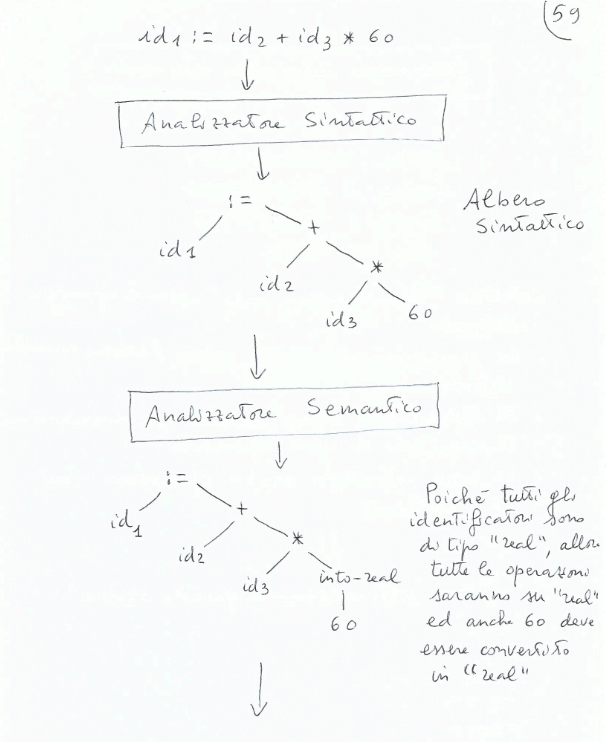 59
id1 := id2 + id3 * 60
Analizzatore Sintattico
:=
Albero
Sintattico
id1
+
id2
*
id3
60
Analizzatore Semantico
:=
id1
+
id2
*
id3
into-real
60
Poiché tutti gli
identificatori sono
di tipo "real", allora
tutte le operazioni
saranno su "real"
ed anche 60 deve
essere convertito
in "real"